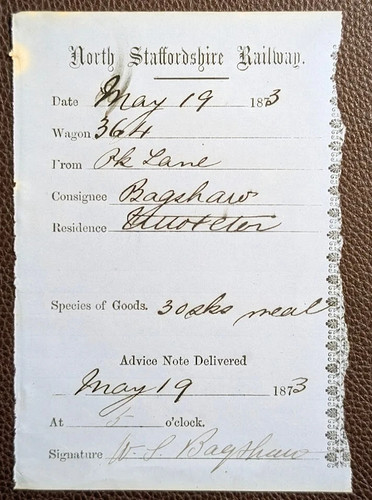 North Staffordshire Railway.
Date May 19 1873
Wagon 364
From Pk Lane
Consignee Bagshaw
Residence Uttoxeter
Species of Goods. 30 sks meal
Advice Note Delivered
May 19 1873
At 5 o'clock.
Signature W. S. Bagshaw